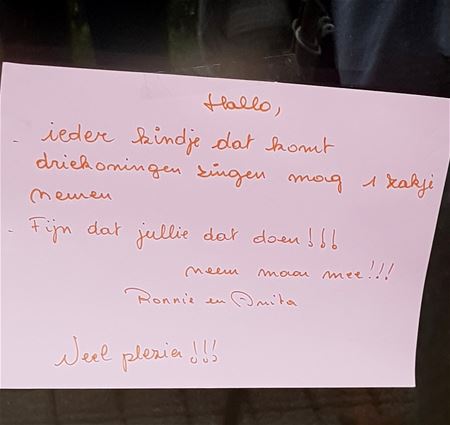 Hallo,
- ieder kindje dat komt
driekoningen zingen mag 1 zakje
nemen
- Fijn dat jullie dat doen!!!
neem maar mee!!!
Ronnie en Anita
Veel plezier!!!